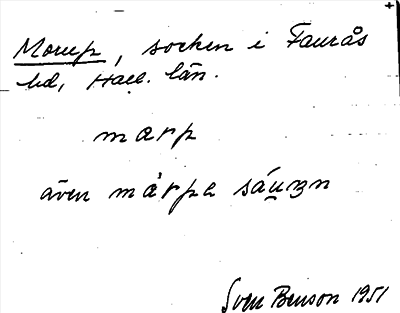 Morup, socken i Faurås
hd, Hall. län.
marp
även márpa sáu̯ən
Sven Benson 1951